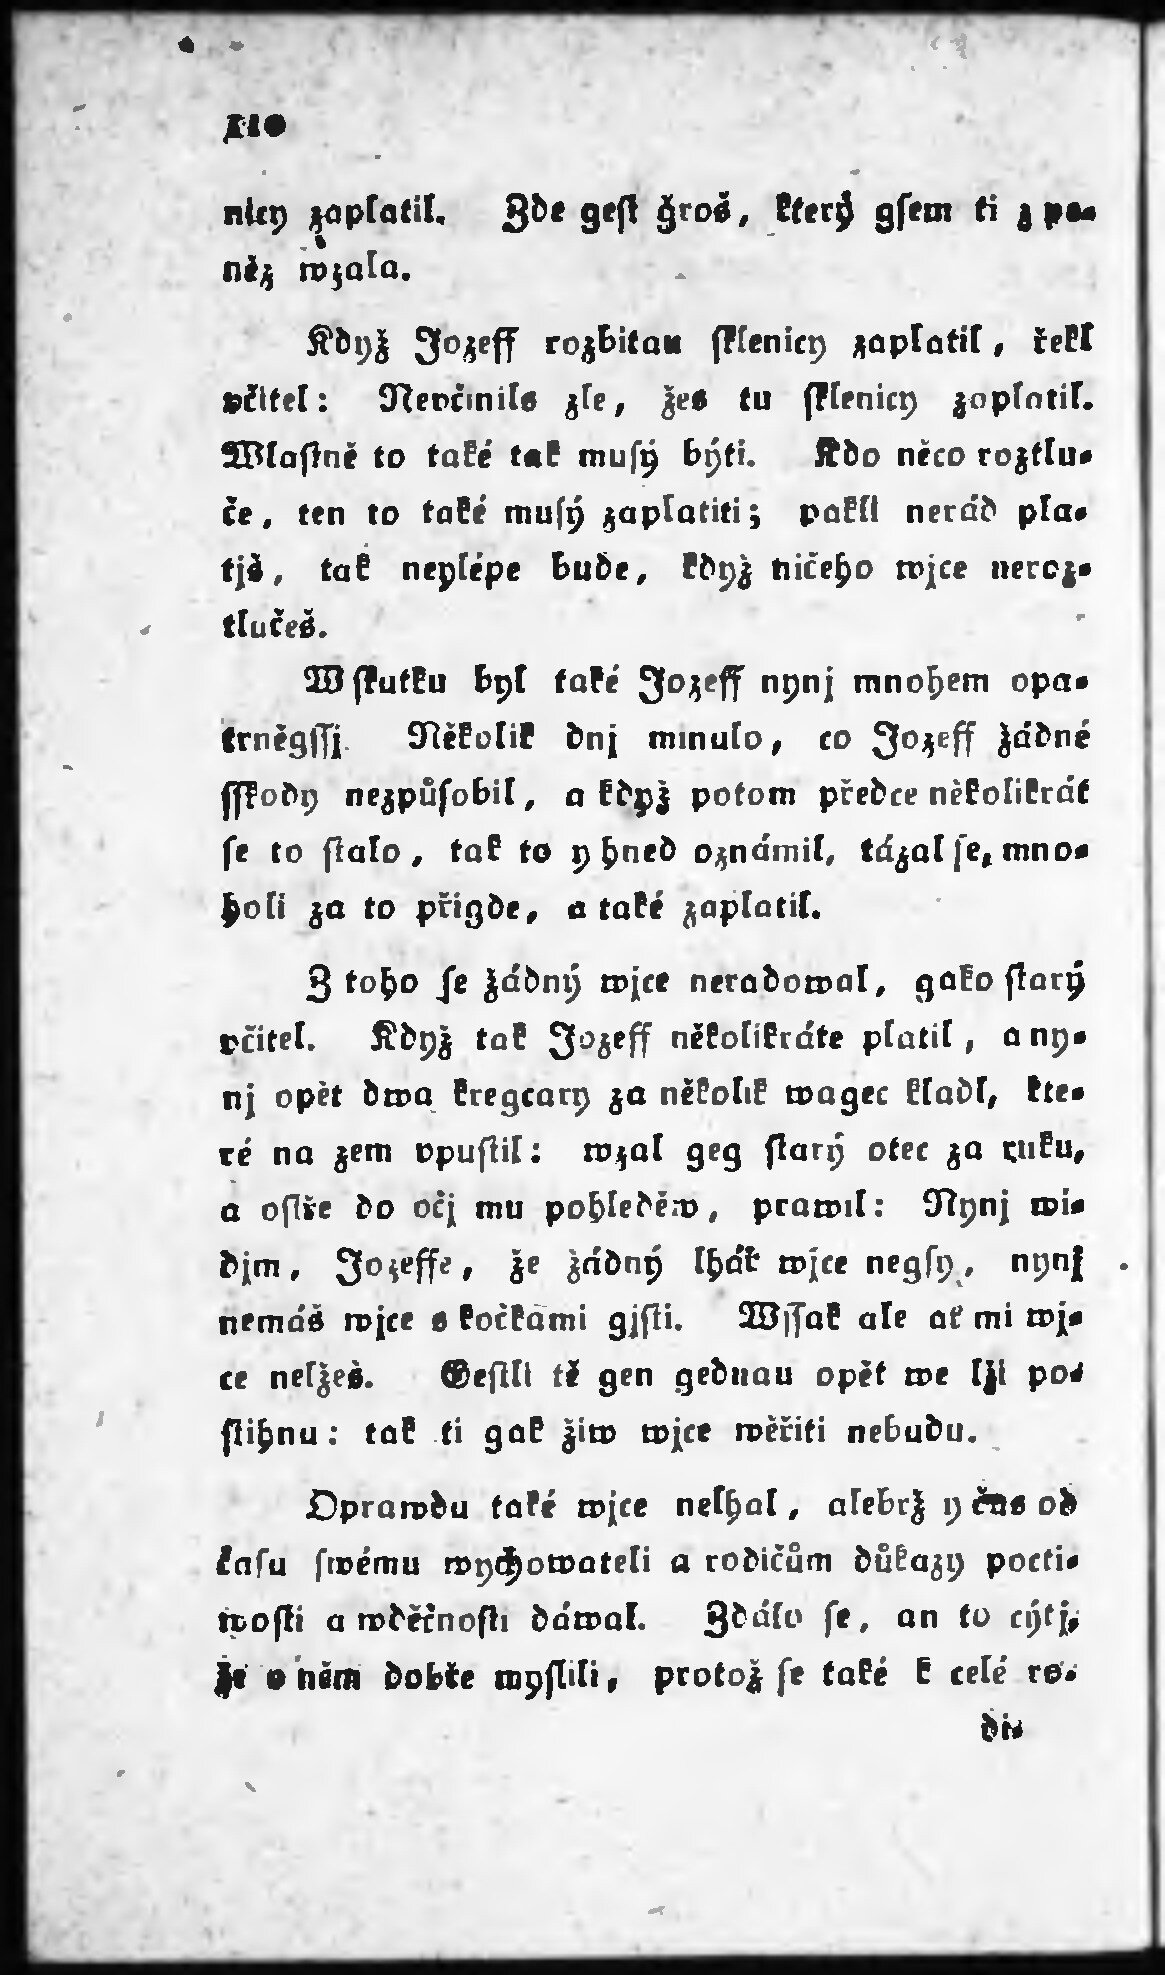 110
nicy zaplatil. Zde gest ğroš, který gsem ti z pe-
něz wzala.
Když Jozeff rozbitau sklenicy zaplatil, řekl
včitel: Nevčinils zle, žes tu sklenicy zaplatil.
Wlastně to také tak musý býti. Kdo něco roztlu-
če, ten to také musý zaplatiti; pakli nerád pla-
tjš, tak neplépe bude, když ničeho wjce neroz-
tlučeš.
W skutku byl také Jozeff nynj mnohem opa-
trněgssj. Několik dnj minulo, co Jozeff žádné
sskody nezpůsobil, a když potom předce několikrát
se to stalo, tak to y hned oznámil, tázal se, mno-
holi za to přigde, a také zaplatil.
Z toho se žádný wjce neradowal, gako starý
včitel. Když tak Jozeff několikráte platil, a ny-
nj opět dwa kregcary za několik wagec kladl, kte-
ré na zem vpustil: wzal geg starý otec za ruku,
a ostře do očj mu pohleděw, prawil: Nynj wi-
djm, Jozeffe, že žádný lhář wjce negsy, nynj
nemáš wjce s kočkami gjsti. Wssak ale ať mi wj-
ce nelžeš. Gestli tě gen gednau opět we lži po-
stihnu: tak ti gak žiw wjce wěřiti nebudu.
Oprawdu také wjce nelhal, alebrž y čas od
času swému wychowateli a rodičům důkazy pocti-
wosti a wděčnosti dáwal. Zdálo se, an to cýtj,
že o něm dobře myslili, protož se také k celé ro-
di-